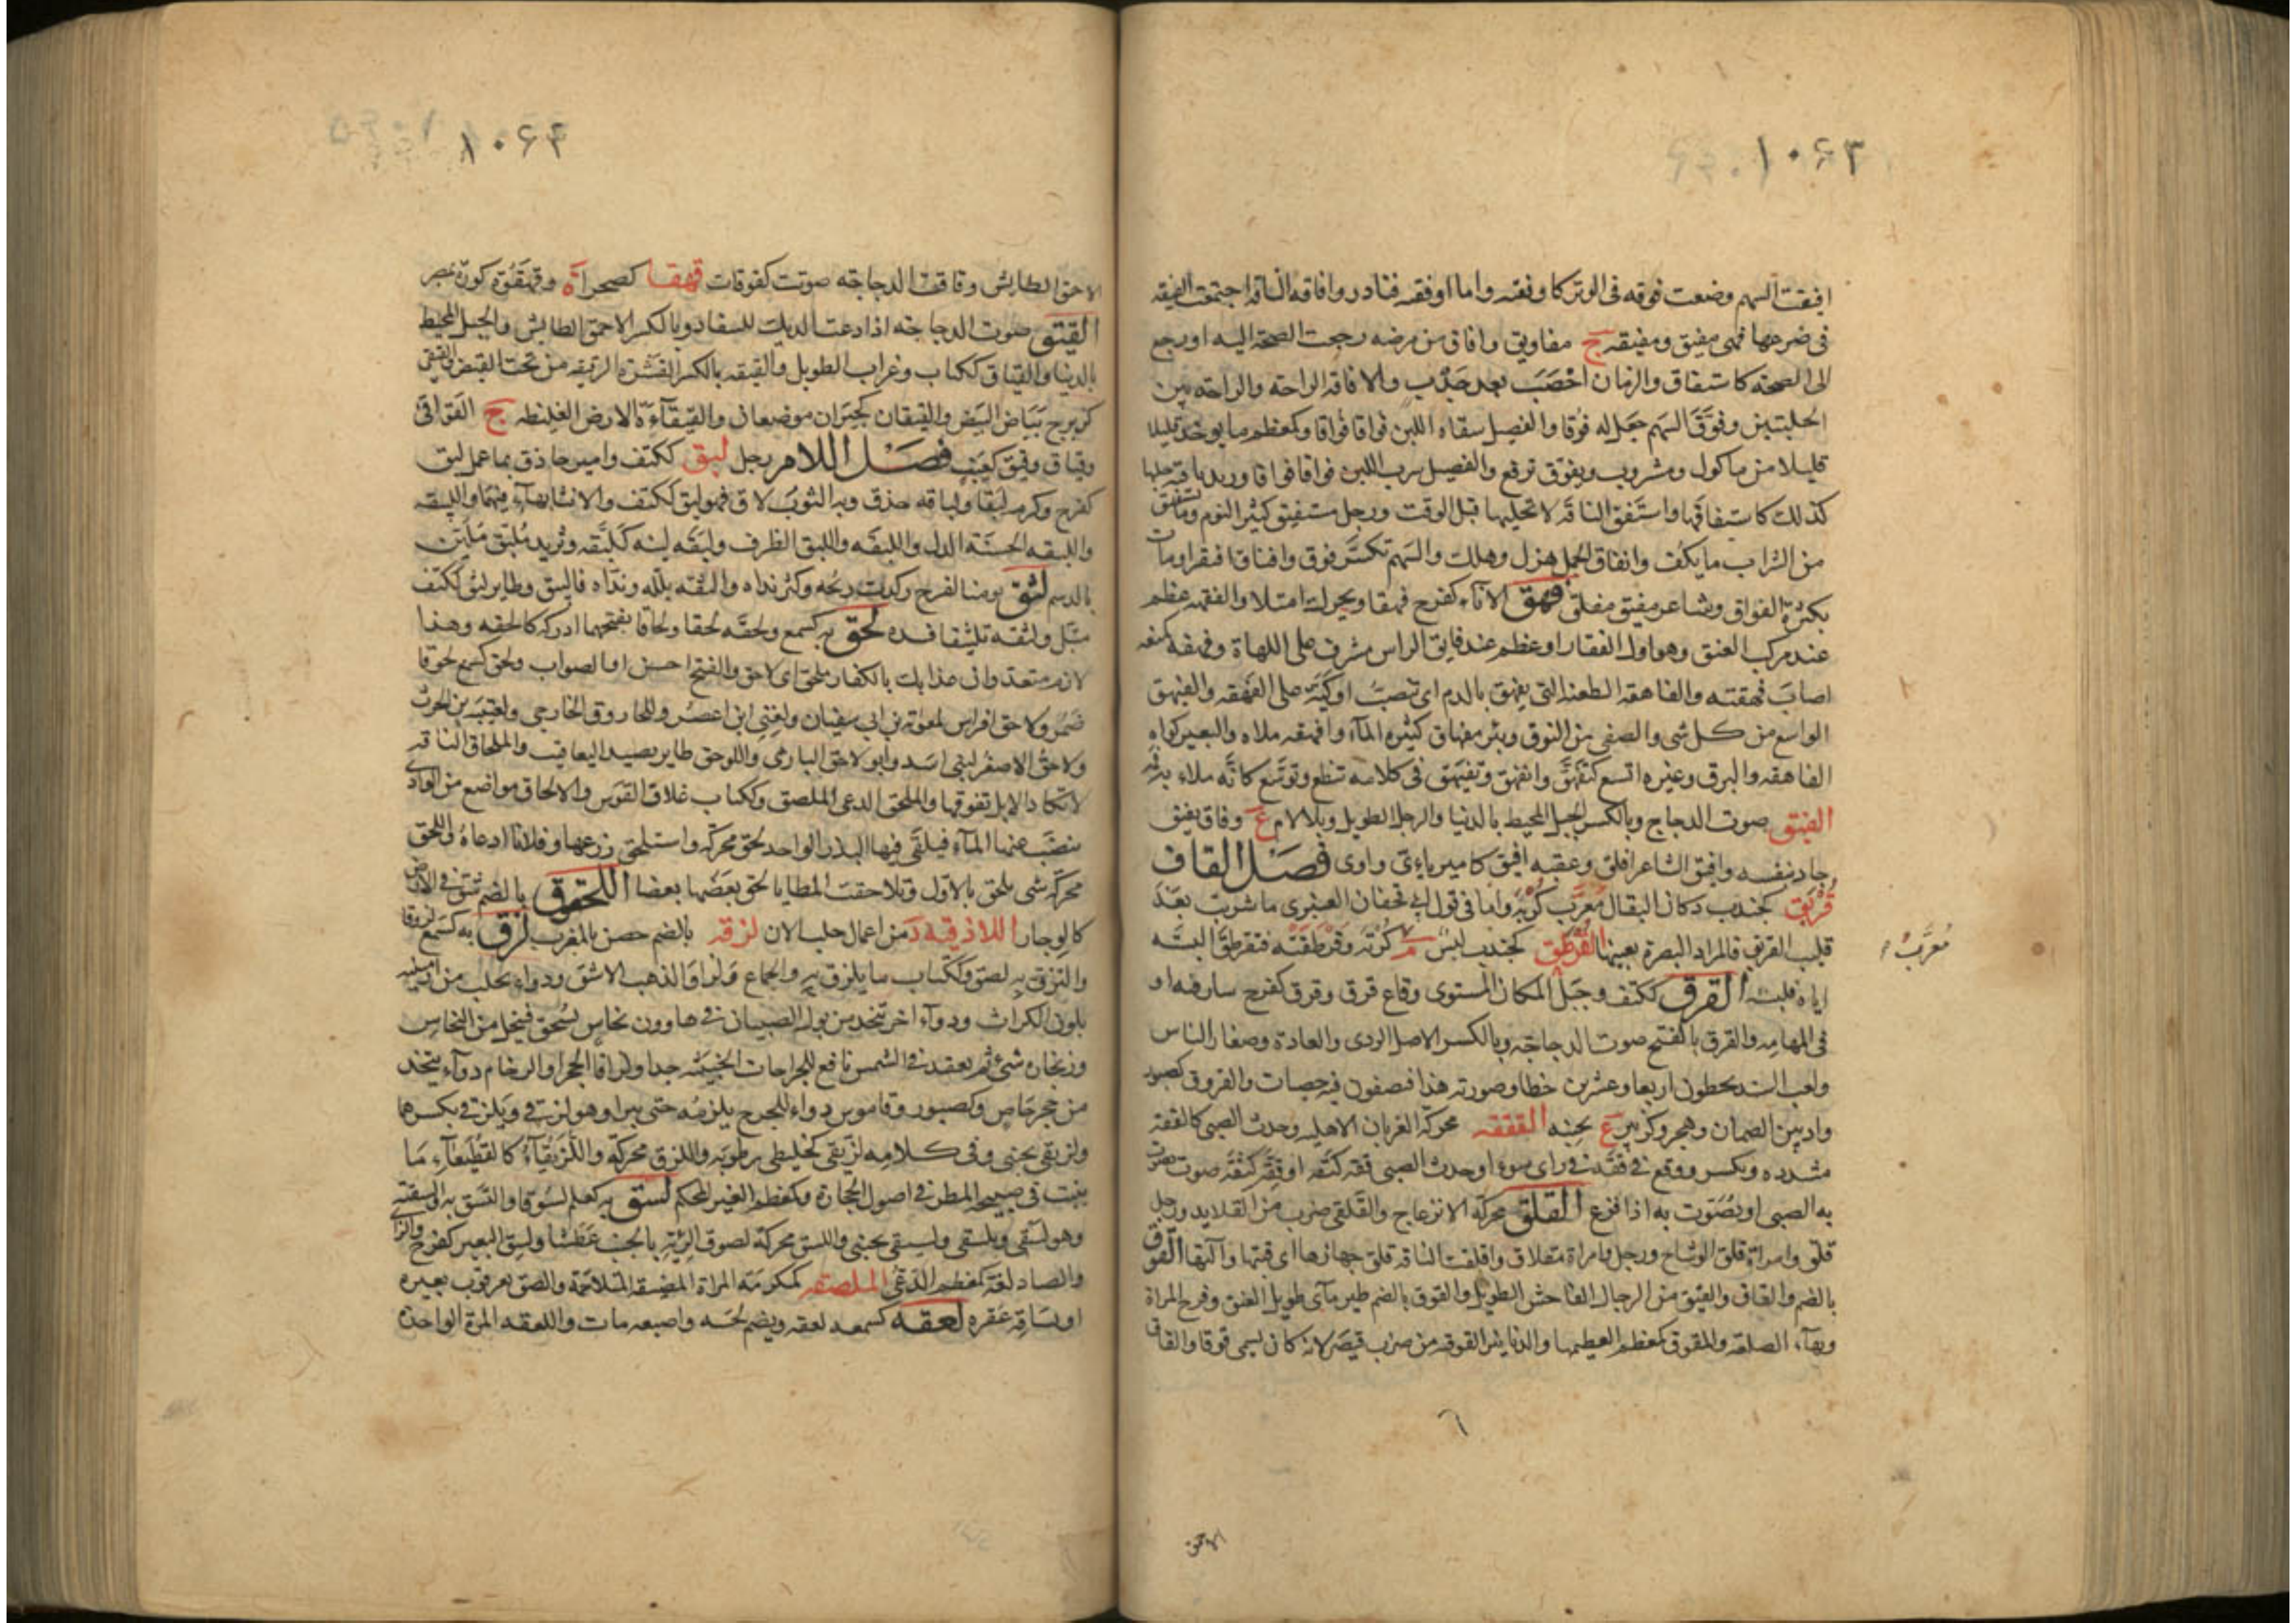 ١٠۶٣
افيقت السهم وضعت فوقه فى الوتر كاوفقه واما اوفقه فنادر وافاقه الناقة اجتمعت الفيقه
فى ضرعها فهى مفيق ومفيقه ج مفاويق وافاق من مرضه رجعت الصحة اليه او رجع
الى الصحة كاستفاق والزمان اخصب بعد جدب والافاقة الراحة والراحة بين
الحلبتين وفوّق السهم جعل له فوقا والفصيل سقاه اللبن فواقا فواقا وكمعظم ما يوخذ قليلا
قليلا من ماكول ومشروب ويفوق ترفع والفصيل شرب اللبن فواقا فواقا وزيد ناقته حلبها
كذلك كاستفاقها واستفق الناقة لا تحلبها قبل الوقت ورجل مستفيق كثير النوم وما يستفيق
من الشراب ما يكف وانفاق الجمل هزل وهلك والسهم تكسر فوقه وافتاق افتقر او مات
بكثرة الفواق وشاعر مفيق مفلق فهق الاناء كفرح فهقا ويحرك امتلا والفهقه عظم
عند مركب العنق وهو اول الفقار او عظم عند فايق الراس مشرف على اللهاة وفهقه كمنعه
اصاب فهقته والفاهقه الطعنه التى يفهق بالدم اى تتصبب او كيّة على الفهقه والفيهق
الواسع من كل شى والصفى من النوق وبئر مفهاق كثيره الماء وافهقه ملاه والبعير كواه
الفاهقه والبرق وغيره اتسع كتفهق وانفهق وتفيهق فى كلامه تنطع وتوسع كانه ملاء به فمه
الفيق صوت الدجاج وبالكسر الجبل المحيط بالدنيا والرجل الطويل وبلا لام ع وفاق يفيق
جاد بنفسه وافيق الشاعر افلق وعقبه افيق كامير يائى واوى فصل القاف
قربق كجندب دكان البقال معرّب كربه واما فى قول ابى قحفان العنبرى ما شربت بعد
قليب القربق فالمراد البصرة بعينها القرطق كجندب لبس م كرته وقرطقته فتقرطق البسته
اياه فلبسه القرق ككتف وجبل المكان المستوى وقاع قرق وقرق كفرح سار فيه او
فى المهامه والقرق بالفتح صوت الدجاجه وبالكسر الاصل الردى والعادة وصغار الناس
ولعب السدر يخطون اربعا وعشرين خطا وصورته هذا فيصفون فيه حصيات والقروق كصبور
واد بين الصمان وهجر وكزبير ع بجنبه الققفه محركة الغربان الاهليه وحدث الصبى كالققه
مشدده ويكسر ووقع فى ققه فى راى سوء او حدث الصبى ققه كثقه او ققّه كثقه صوت يصوت
به الصبى او يصوت به اذا فزع القلق محركة الانزعاج والقلقى ضرب من القلايد ورجل
قلق وامراة قلق الوشاح ورجل وامراة مقلاق واقلقت الناقه قلق جهازها اى قتبها وآلتها القوق
بالضم والقاق والقيق من الرجال الفاحش الطويل والقوق بالضم طير مآى طويل العنق وفرج المراة
وبهاء، الصلعة والمقوق كمعظم العظيمها والدنانير القوقيه من ضرب قيصر لانه كان يسمى قوقا والقاق
معرّب
الاحمق
١٠۶۴
الاحمق الطايش وقاقت الدجاجه صوتت كقوقات قهقا كصحراة وقهقوة كورة بمصر
القيق صوت الدجاجه اذا دعت الديك للسفاد وبالكسر الاحمق الطايش والجبل المحيط
بالدنيا والقياق ككتاب وغراب الطويل والقيقه بالكسر القشرة الرقيقه من تحت القيض والقيقى
كزبرج بياض البيض والقيقان كجيران موضعان والقيقآءة الارض الغليظه ج القواقى
وقياق وقيق كعيب فصل اللام رجل لبق ككتف وامير حاذق بما عمل لبق
كفرح وكرم لبقا ولباقه حذق وبه الثوب لاق فهو لبق ككتف والانثى بهاء فيهما واللبيقه
واللبقه الحسنة الدل واللبقه واللبق الظرف ولبقه لينه كلبقه وثريد ملبق ملين
بالدسم لثق يومنا كفرح ركدت ريحه وكثر نداه والثقه بلله ونداه فالتثق وطاير لثق ككتف
مبتل ولثقه تلثيقا افسده لحق به كسمع ولحقه لحقا ولحاقا بفتحهما ادركه كالحقه وهذا
لازم متعد وان عذابك بالكفار ملحق اى لاحق والفتح احسن او الصواب ولحق كسمع لحوقا
ضمر ولاحق افراس لمعوية بن ابى سفيان ولغنى ابن اعصر وللحازوق الخارجى ولعتيبه بن الحرث
ولاحق الاصغر لبنى اسد وابو لاحق البازى واللوحق طاير يصيد اليعاقيب والملحاق الناقه
لا تكاد الابل تفوقها والملحق الدعى الملصق وككتاب غلاف القوس والالحاق مواضع من الوادى
ينضب عنها المآء فيلقى فيها البذر الواحد لحق محركه واستلحق زرعها وفلانا ادعاه واللحق
محركة شى يلحق بالاول وتلاحقت المطايا لحق بعضها بعضا اللخقوق بالضم شق فى الارض
كالوجار اللاذقيه د من اعمال حلب الان لزقه بالضم حصن بالمغرب لزق به كسمع لزوقا
والتزق به لصق وككتاب ما يلزق به والجماع ولزاق الذهب الاشق ودواء يجلب من ارمينيه
بلون الكراث ودوآء اخر يتخذ من بول الصبيان فى هاوون نحاس يسحق فينحل من النحاس
وزنجان شئ ثم يعقد فى الشمس نافع للجراحات الخبيثه جدا ولزاق الحجر او الرخام دوآء يتخذ
من حجر خاص وكصبور وقاموس دواء للجرح يلزمه حتى يبرا وهو لزقى ويلزقى بكسرهما
ولزيقى بجنبى وفى كلامه لزيقى كخليطى رطوبه واللزق محركة واللزيقآء كالقطيعآء ما
ينبت فى صبيحه المطر فى اصول الحجارة وكمعظم الغير المحكم لسق به كعلم لسوقا والتسق به والسقته
وهو لسقى وبلسقى ولسيقى بجنبى واللسق محركة لصوق الرئه بالجنب عطشا ولسق البعير كفرح والزا
والصاد لغة كمعظم الدعى الملصقه كمكرمة المراة الضيقه المتلاحمة والصق بعرقوب بعيره
او بساقه عقره لعقه كسمعه لعقه ويضم لحسه واصبعه مات واللعقه المرة الواحدة